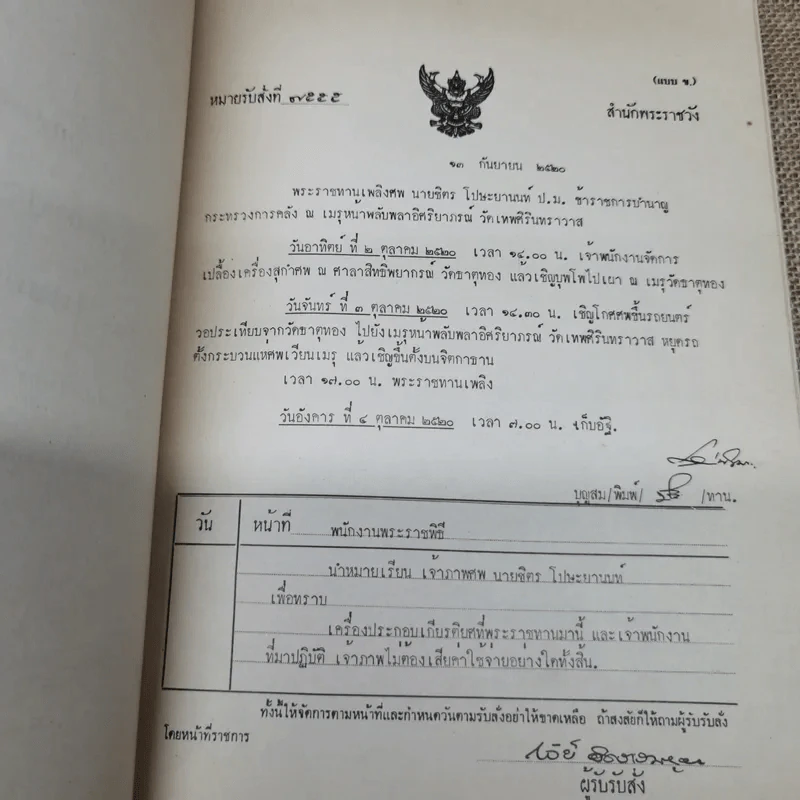 (แบบ ข.)
หมายรับสั่งที่ ๗๕๕๕
สำนักพระราชวัง
๑๓ กันยายน ๒๕๒๐
พระราชทานเพลิงศพ นายชิตร โปษะยานนท์ ป.ม. ข้าราชการบำนาญ
กระทรวงการคลัง ณ เมรุหน้าพลับพลาอิศริยาภรณ์ วัดเทพศิรินทราวาส
วันอาทิตย์ ที่ ๒ ตุลาคม ๒๕๒๐ เวลา ๑๔.๐๐ น. เจ้าพนักงานจัดการ
เปลื้องเครื่องสุกำศพ ณ ศาลาสิทธิพยากรณ์ วัดธาตุทอง แล้วเชิญบุพโพไปเผา ณ เมรุวัดธาตุทอง
วันจันทร์ ที่ ๓ ตุลาคม ๒๕๒๐ เวลา ๑๔.๓๐ น. เชิญโกศศพขึ้นรถยนตร์
วอประเทียบจากวัดธาตุทอง ไปยังเมรุหน้าพลับพลาอิศริยาภรณ์ วัดเทพศิรินทราวาส หยุดรถ
ตั้งกระบวนแห่ศพเวียนเมรุ แล้วเชิญขึ้นตั้งบนจิตกาธาน
เวลา ๑๗.๐๐ น. พระราชทานเพลิง
วันอังคาร ที่ ๔ ตุลาคม ๒๕๒๐ เวลา ๗.๐๐ น. เก็บอัฐิ.
บุญสม/พิมพ์/ /ทาน.
วัน หน้าที่ พนักงานพระราชพิธี
นำหมายเรียน เจ้าภาพศพ นายชิตร โปษะยานนท์
เพื่อทราบ
เครื่องประกอบเกียรติยศที่พระราชทานมานี้ และเจ้าพนักงาน
ที่มาปฏิบัติ เจ้าภาพไม่ต้องเสียค่าใช้จ่ายอย่างใดทั้งสิ้น.
ทั้งนี้ให้จัดการตามหน้าที่และกำหนดวันตามรับสั่งอย่าให้ขาดเหลือ ถ้าสงสัยก็ให้ถามผู้รับรับสั่ง
โดยหน้าที่ราชการ
ผู้รับรับสั่ง